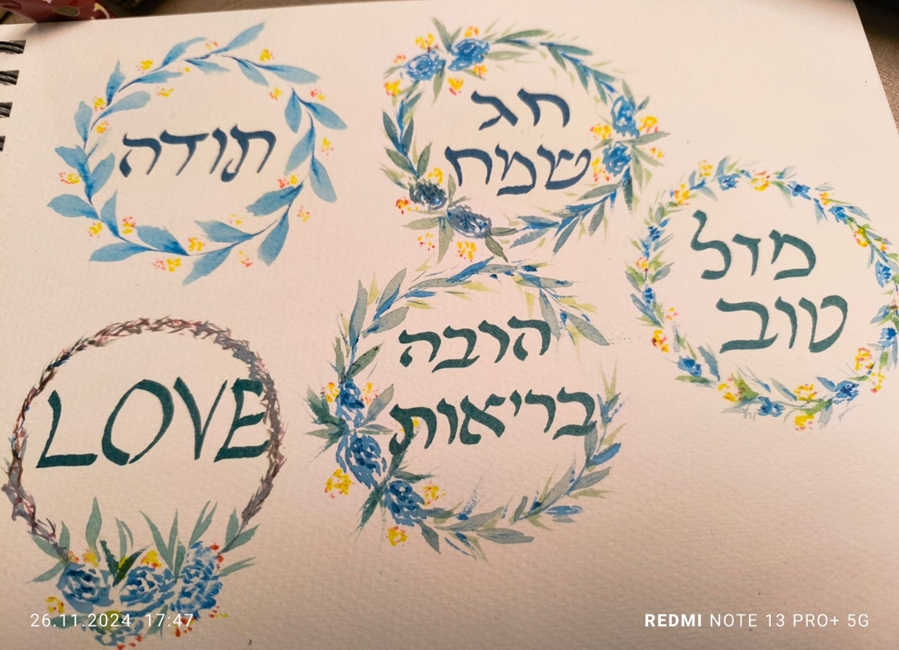 תודה
חג
שמח
מזל
טוב
הובה
בריאות
LOVE
26.11.2024 17:47
REDMI NOTE 13 PRO+ 5G